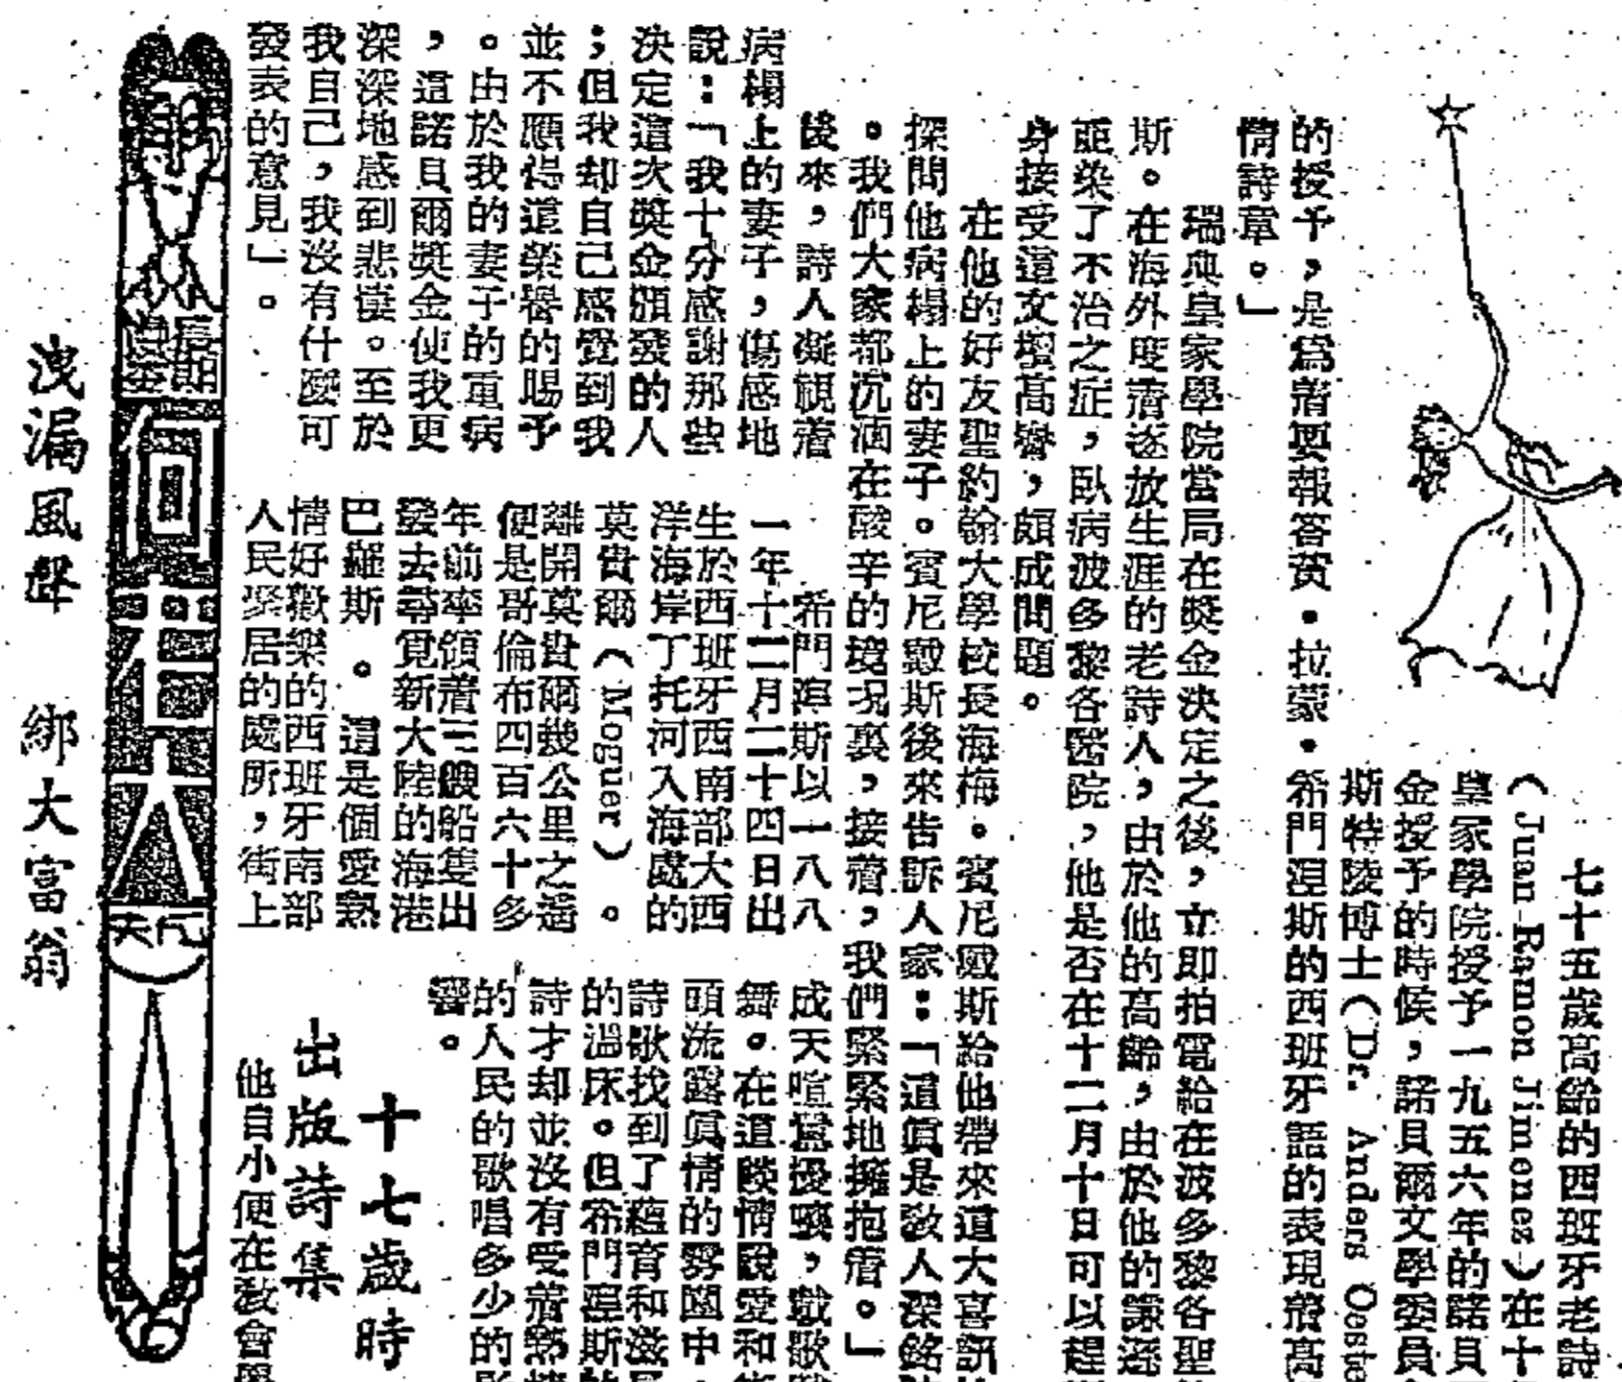 七十五歲高齡的西班牙老詩
（Juan Ramon Jimonez）在十
皇家學院授予一九五六年的諾貝
金授予的時候，諾貝爾文學委員
斯特陵博士（Dr. Anders Ooste
的授予，是爲着要報答黃・拉蒙・希門涅斯的西班牙語的表現着高
情詩章。」
瑞典皇家學院當局在獎金決定之後，立即拍電給在波多黎各聖
斯。在海外度着逐放生涯的老詩人，由於他的高齡，由於他的謙遜
距染了不治之症，臥病波多黎各醫院，他是否在十二月十日可以趕
身接受這文壇高譽，頗成問題。
在他的好友聖約翰大學校長海梅。賓尼戴斯給他帶來這大喜訊
探問他病榻上的妻子。賓尼戴斯後來告訴人家：「這眞是敎人深銘
。我們大家都沉湎在酸辛的境況裏，接着，我們緊緊地擁抱着。」
後來，詩人凝視着
病榻上的妻子，傷感地
說：「我十分感謝那些
決定這次獎金頒發的人
；但我却自己感覺到我
並不應得這榮譽的賜予
。由於我的妻子的重病
，這諾貝爾獎金使我更
深深地感到悲悽。至於
我自己，我沒有什麼可
發表的意見」。
希門涅斯以一八八
一年十二月二十四日出
生於西班牙西南部大西
洋海岸丁托河入海處的
莫貴爾（Moguer）。
離開莫貴爾幾公里之遙
便是哥倫布四百六十多
年前率領着三艘船隻出
發去尋覓新大陸的海港
巴羅斯。這是個愛熱
情好歡樂的西班牙南部
人民聚居的處所，街上
成天喧鬧擾嚷，歌
舞。在這談情說愛和
頭流露眞情的雰圍中
詩歌找到了蘊育和滋
的溫床。但希門涅斯
詩才却並沒有受着
的人民的歌唱多少的
響。
十七歲時
出版詩集
他自小便在敎會
何若人
洩漏風聲　綁大富翁